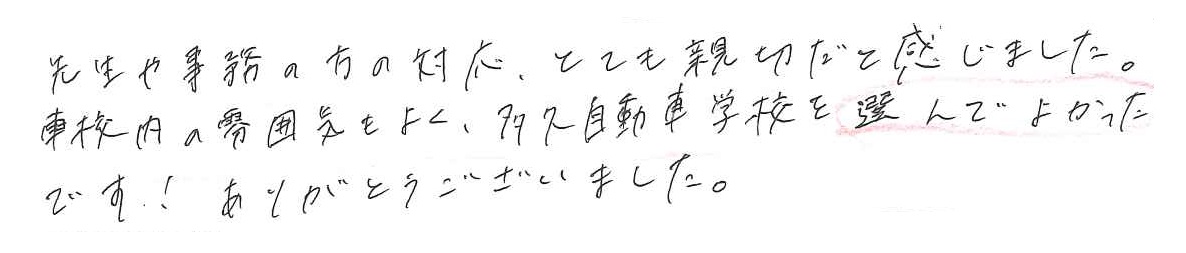 先生や事務の方の対応、とても親切だと感じました。
車校内の雰囲気もよく、多久自動車学校を選んでよかった
です！ありがとうございました。